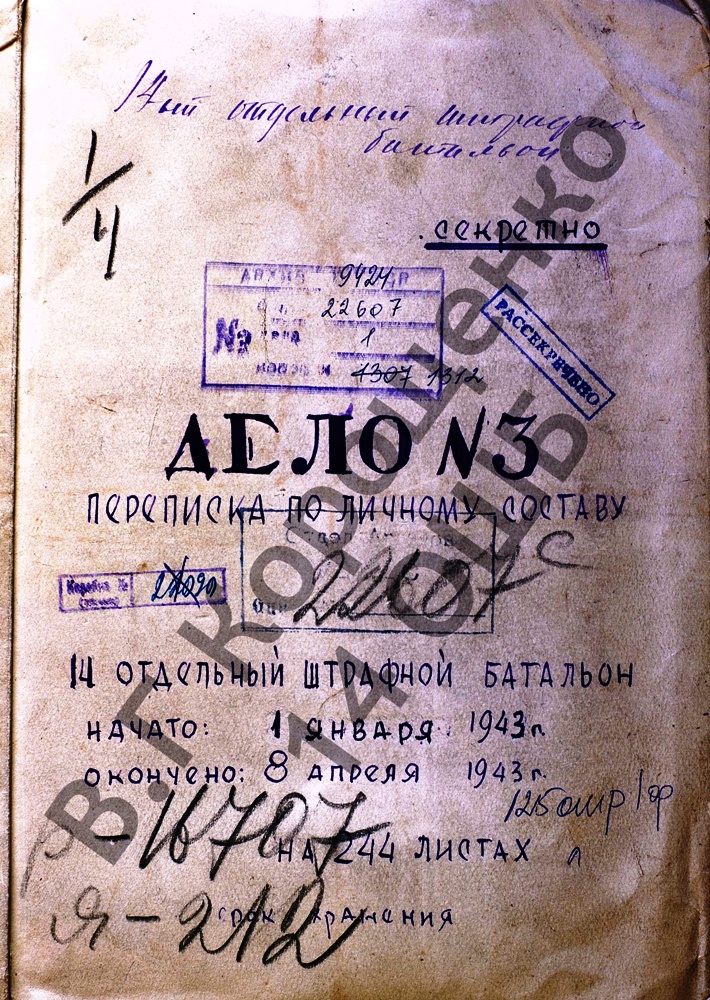 14ый отдельный штрафной
батальон
1/4
секретно
АРХИВ 9424
22607
№ 1
4307 1312
РАССЕКРЕЧЕНО
ДЕЛО N3
ПЕРЕПИСКА ПО ЛИЧНОМУ СОСТАВУ
22607
Коробка №
14 ОТДЕЛЬНЫЙ ШТРАФНОЙ БАТАЛЬОН
НАЧАТО: 1 ЯНВАРЯ 1943 г.
ОКОНЧЕНО: 8 АПРЕЛЯ 1943 г.
р-16707
НА 244 ЛИСТАХ
Я-212
СРОК ХРАНЕНИЯ
В.Г. Корощенко
14 ОШБ